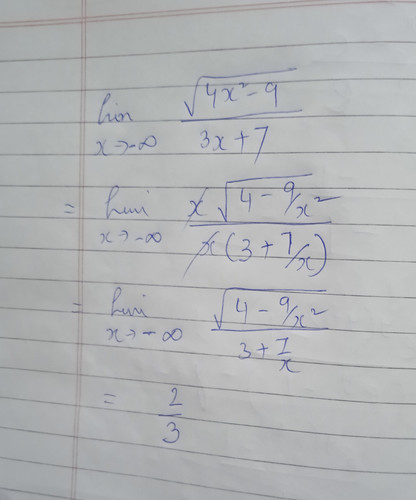 lim x→-∞ √(4x²-9) / (3x+7)
= lim x→-∞ x√(4-9/x²) / x(3+7/x)
= lim x→-∞ √(4-9/x²) / (3+7/x)
= 2/3